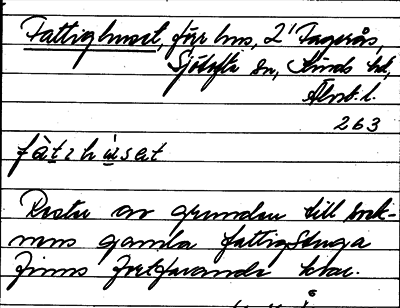 Fattighuset, förr hus, 2' Fagerås,
Sjötofta sn, Kinds hd,
Älvsb. l.
263
fàtzhùsat
Rester av grunden till sock-
nens gamla fattigstuga
finns fortfarande kvar.